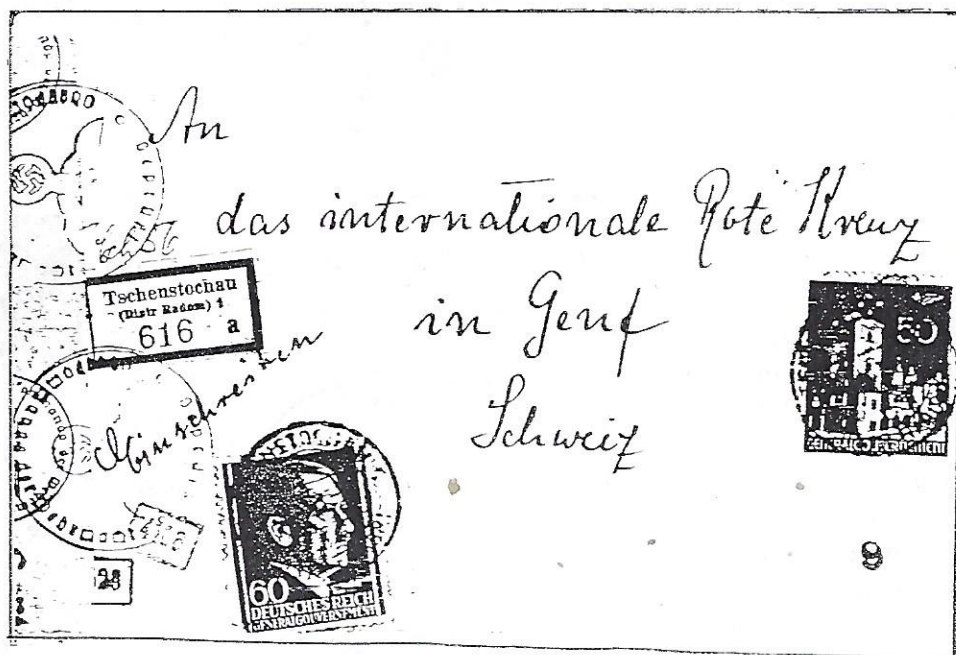 An
das internationale Rote Kreuz
in Genf
Schweiz
Tschenstochau
(Distr Radom) 1
616 a
Einschreiben
50
GENERALGOUVERNEMENT
60
DEUTSCHES REICH
GENERALGOUVERNEMENT